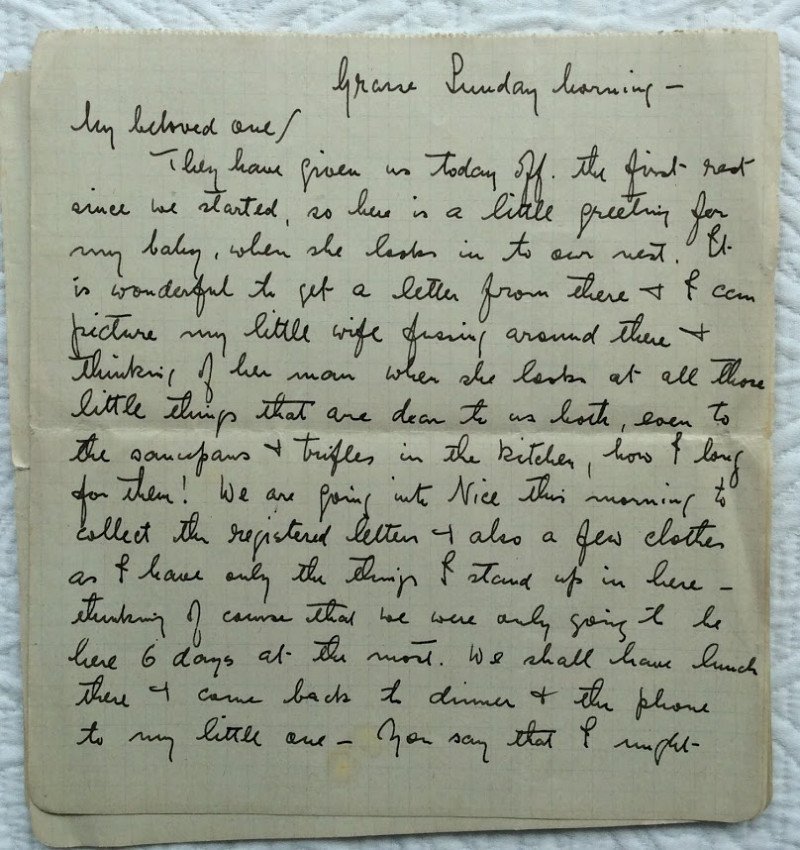 Grasse Sunday Morning –
My beloved one/
They have given us today off. the first rest
since we started, so here is a little greeting for
my baby, when she looks in to our nest. It
is wonderful to get a letter from there + I can
picture my little wife fussing around there +
thinking of her man when she looks at all those
little things that are dear to us both, even to
the saucepans + trifles in the kitchen, how I long
for them! We are going into Nice this morning to
collect the registered letters + also a few clothes
as I have only the things I stand up in here –
thinking of course that we were only going to be
here 6 days at the most. We shall have lunch
there + come back to dinner + the phone
to my little one – You say that I might